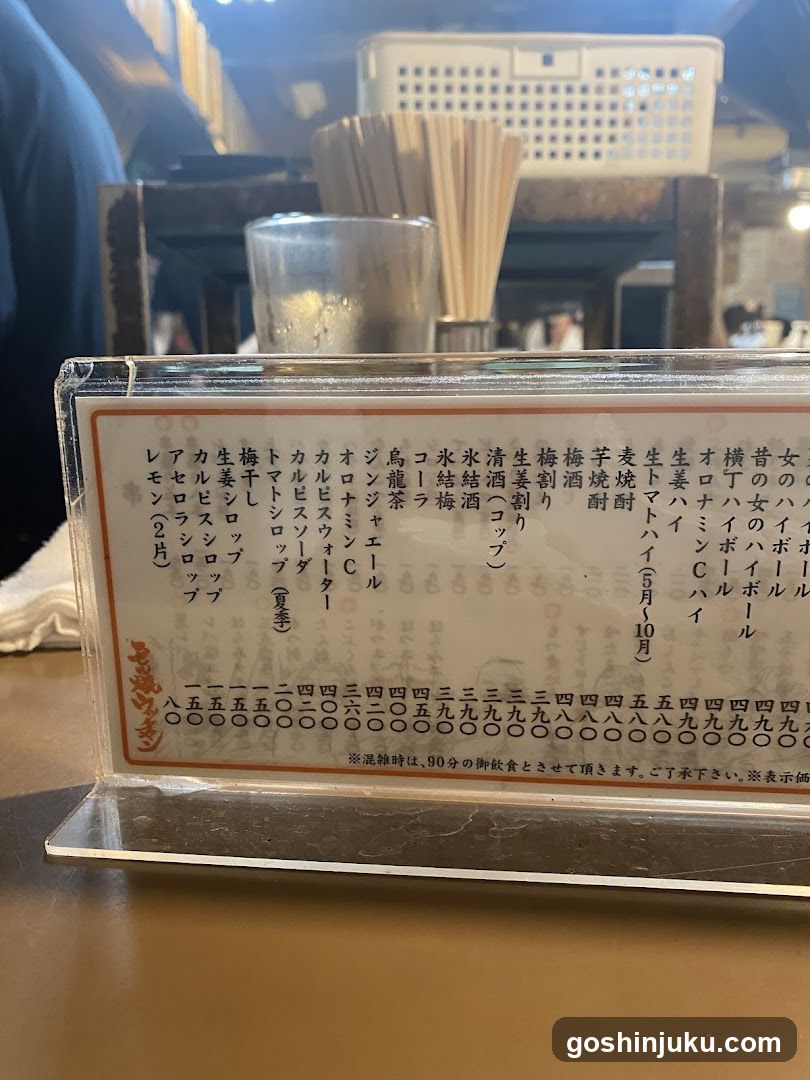 女のハイボール 四九〇
昔の女のハイボール 四九〇
横丁ハイボール 四九〇
オロナミンCハイ 四九〇
生姜ハイ 五八〇
生トマトハイ(5月〜10月) 五八〇
麦焼酎 四八〇
芋焼酎 四八〇
梅酒 四八〇
梅割り 三九〇
生姜割り 三九〇
清酒(コップ) 三九〇
氷結酒 三九〇
氷結梅 三九〇
コーラ 四五〇
烏龍茶 四〇〇
ジンジャエール 四二〇
オロナミンC 三六〇
カルピスウォーター 四〇〇
カルピスソーダ 四二〇
トマトシロップ(夏季) 二〇〇
梅干し 一五〇
生姜シロップ 一五〇
カルピスシロップ 一五〇
アセロラシロップ 一五〇
レモン(2片) 八〇
※混雑時は、90分の御飲食とさせて頂きます。ご了承下さい。※表示価
goshinjuku.com